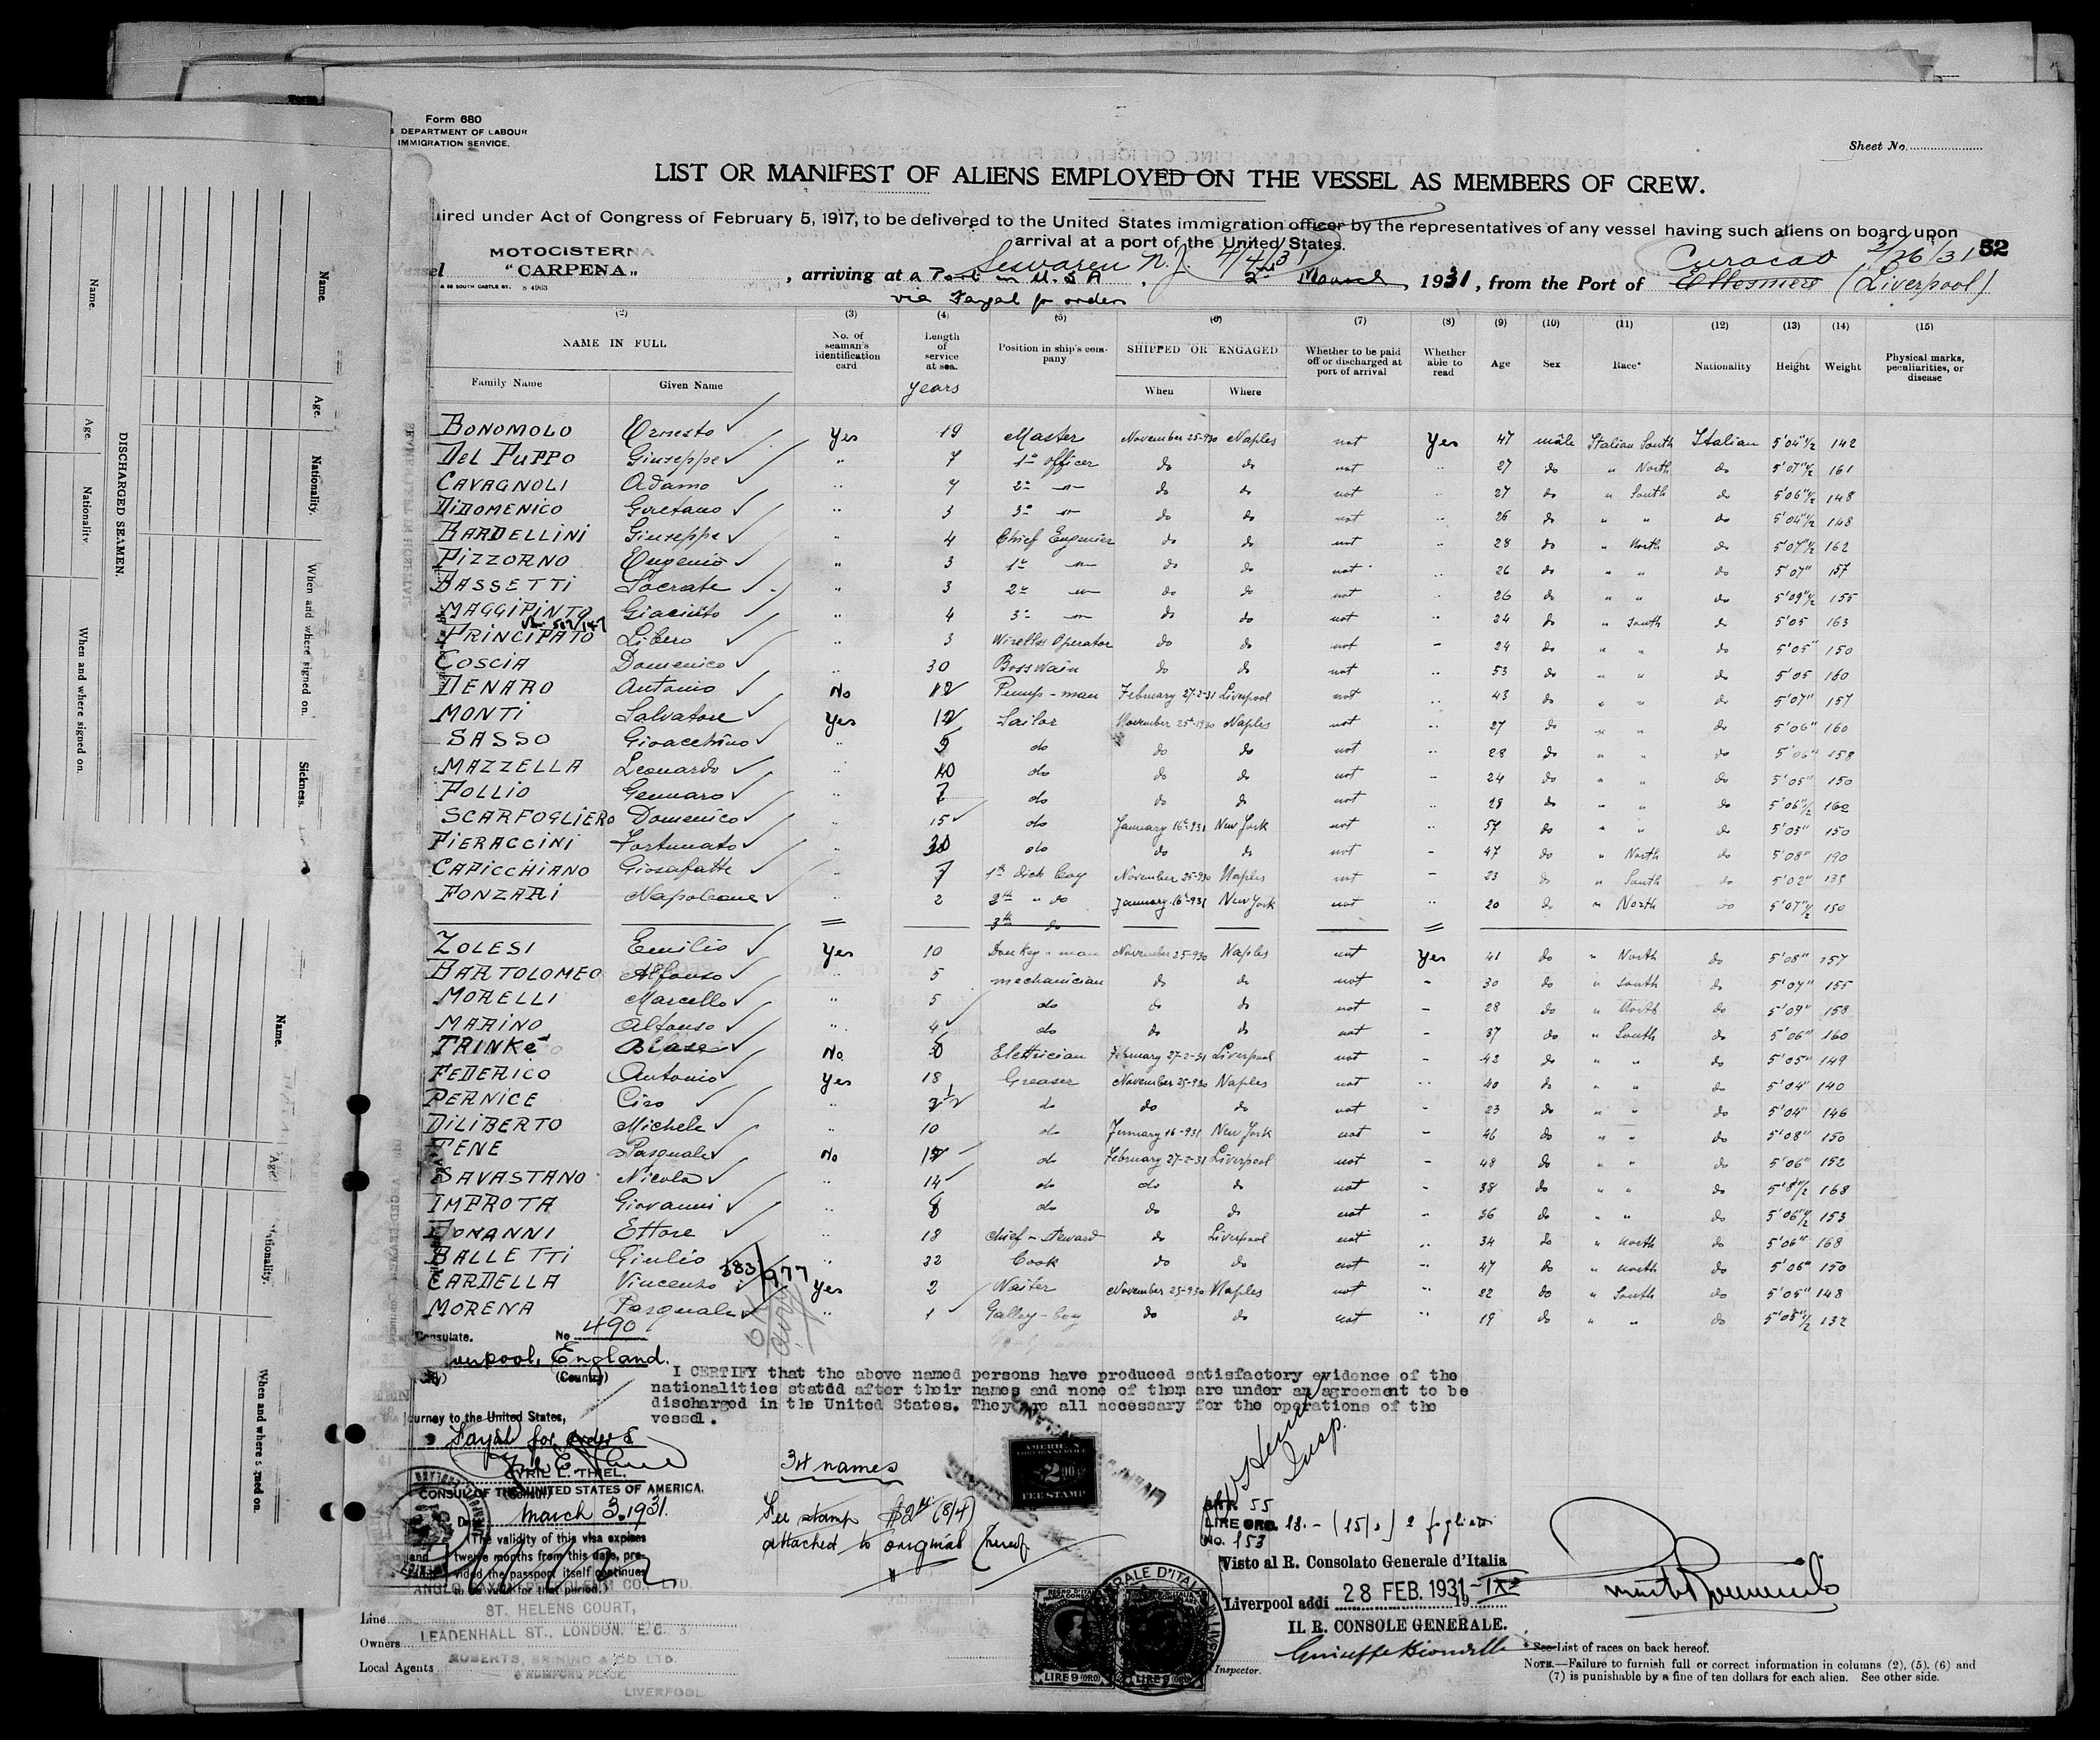 Form 680
DEPARTMENT OF LABOUR
IMMIGRATION SERVICE.
Sheet No.
LIST OR MANIFEST OF ALIENS EMPLOYED ON THE VESSEL AS MEMBERS OF CREW.
uired under Act of Congress of February 5, 1917, to be delivered to the United States immigration officer by the representatives of any vessel having such aliens on board upon
arrival at a port of the United States.
52
Vessel MOTOCISTERNA "CARPENA" , arriving at a Port in U.S.A. Sewaren N.J. 4/4/31 2nd March 1931, from the Port of Ellesmere (Liverpool) Curacao 3/26/31
via Fayal for orders
(2) (3) (4) (5) (6) (7) (8) (9) (10) (11) (12) (13) (14) (15)
NAME IN FULL No. of seaman's identification card Length of service at sea. Position in ship's company SHIPPED OR ENGAGED Whether to be paid off or discharged at port of arrival Whether able to read Age Sex Race* Nationality Height Weight Physical marks, peculiarities, or disease
Family Name Given Name years When Where
BONOMOLO Ernesto Yes 19 Master November 25-930 Naples not Yes 47 male Italian South Italian 5'04"1/2 142
DEL PUPPO Giuseppe " 7 1st officer do do not " 27 do " North do 5'07"1/2 161
CAVAGNOLI Adamo " 7 2nd " do do not " 27 do " South do 5'06"1/2 148
DIDOMENICO Gaetano " 3 3rd " do do not " 26 do " " do 5'04"1/2 148
BARDELLINI Giuseppe " 4 Chief Engenier do do not " 28 do " North do 5'07"1/2 162
PIZZORNO Eugenio " 3 1st " do do not " 26 do " " do 5'07" 157
BASSETTI Socrate " 3 2nd " do do not " 26 do " " do 5'09"1/2 155
MAGGIPINTO Giacinto " 4 3rd " do do not " 24 do " South do 5'05 163
PRINCIPATO Libero 3 Wirelles Operator do do not " 24 do " " do 5'05" 150
COSCIA Domenico " 30 Bosswain do do not " 53 do " " do 5'05 160
DENARO Antonio No 12 Pump-man February 27-2-31 Liverpool not " 43 do " " do 5'07" 157
MONTI Salvatore Yes 12 Sailor November 25-1930 Naples not " 27 do " " do 5'06" 160
SASSO Gioacchino " 5 do do do not " 28 do " " do 5'06" 158
MAZZELLA Leonardo " 10 do do do not " 24 do " " do 5'05" 150
POLLIO Gennaro " 7 do do do not " 28 do " " do 5'06"1/2 162
SCARFOGLIERO Domenico " 15 do January 16-931 New York not " 57 do " " do 5'05" 150
PIERACCINI Fortunato " 30 do do do not " 47 do " North do 5'08" 190
CAPICCHIANO Giosafatte " 7 1st dick boy November 25-930 Naples not " 23 do " South do 5'02" 139
FONZARI Napoleone 2 2th " do January 16-931 New York not " 20 do " North do 5'07"1/2 150
3th do
ZOLESI Emilio Yes 10 Donkey-man November 25-930 Naples not Yes 41 do " North do 5'08" 157
BARTOLOMEO Alfonso " 5 mechanician do do not " 30 do " South do 5'07" 155
MORELLI Marcello " 5 do do do not " 28 do " North do 5'09" 158
MARINO Alfonso " 4 do do do not " 37 do " South do 5'06" 160
TRINKE Biase No Elettrician February 27-2-31 Liverpool not " 42 do " " do 5'05" 149
FEDERICO Antonio Yes 18 Greaser November 25-930 Naples not " 40 do " " do 5'04" 140
PERNICE Ciro " do do do not " 23 do " " do 5'04" 146
DILIBERTO Michele " 10 do January 16-931 New York not " 46 do " " do 5'08" 150
TENE Pasquale No 15 do February 27-2-31 Liverpool not " 48 do " " do 5'06" 152
SAVASTANO Nicola " 14 do do do not " 38 do " " do 5'8"1/2 168
IMPROTA Giovanni " 8 do do do not " 36 do " " do 5'06"1/2 153
Ettore " 18 chief-steward do Liverpool not " 34 do " North do 5'06" 168
BALLETTI Giulio " 32 Cook do do not " 47 do " North do 5'06" 150
CARDELLA Vincenzo 583/977 Yes 2 Waiter November 25-930 Naples not " 22 do " South do 5'05" 148
MORENA Pasquale " 1 Galley-boy do do not " 19 do " " do 5'05"1/2 132
Consulate. No 490
verpool, England.
(City) (Country)
I CERTIFY that the above named persons have produced satisfactory evidence of the
nationalities stated after their names and none of them are under an agreement to be
discharged in the United States. They are all necessary for the operations of the
vessel.
journey to the United States,
Fayal for orders
CYRIL L. THIEL.
CONSUL OF THE UNITED STATES OF AMERICA.
Date March 3, 1931.
(The validity of this visa expires
twelve months from this date, pro-
vided the passport itself continues
to be valid for that period.)
34 names
Fee stamp $2 (8/4)
attached to original hereof
AMERICAN
FOREIGN SERVICE
$2.00
FEE STAMP
Insp.
ART. 55
LIRE ORO. 18.- (15/-) 2 fogliett
No. 153
Visto al R. Consolato Generale d'Italia
Liverpool addi 28 FEB. 1931-IX 19
IL R. CONSOLE GENERALE.
Inspector.
LIRE 9 (ORO) LIRE 9 (ORO)
ANGLO SAXON PETROLEUM CO. LTD.
Line ST. HELENS COURT,
Owners LEADENHALL ST., LONDON, E.C. 3.
Local Agents ROBERTS, BRINING & CO LTD.
6 RUMFORD PLACE
LIVERPOOL
* See List of races on back hereof.
NOTE.—Failure to furnish full or correct information in columns (2), (5), (6) and
(7) is punishable by a fine of ten dollars for each alien. See other side.
DISCHARGED SEAMEN.
Name. Age. Nationality. When and where signed on.
Name. Age. Nationality. When and where signed on. Sickness.
Name. Age. Nationality. When and where signed on.